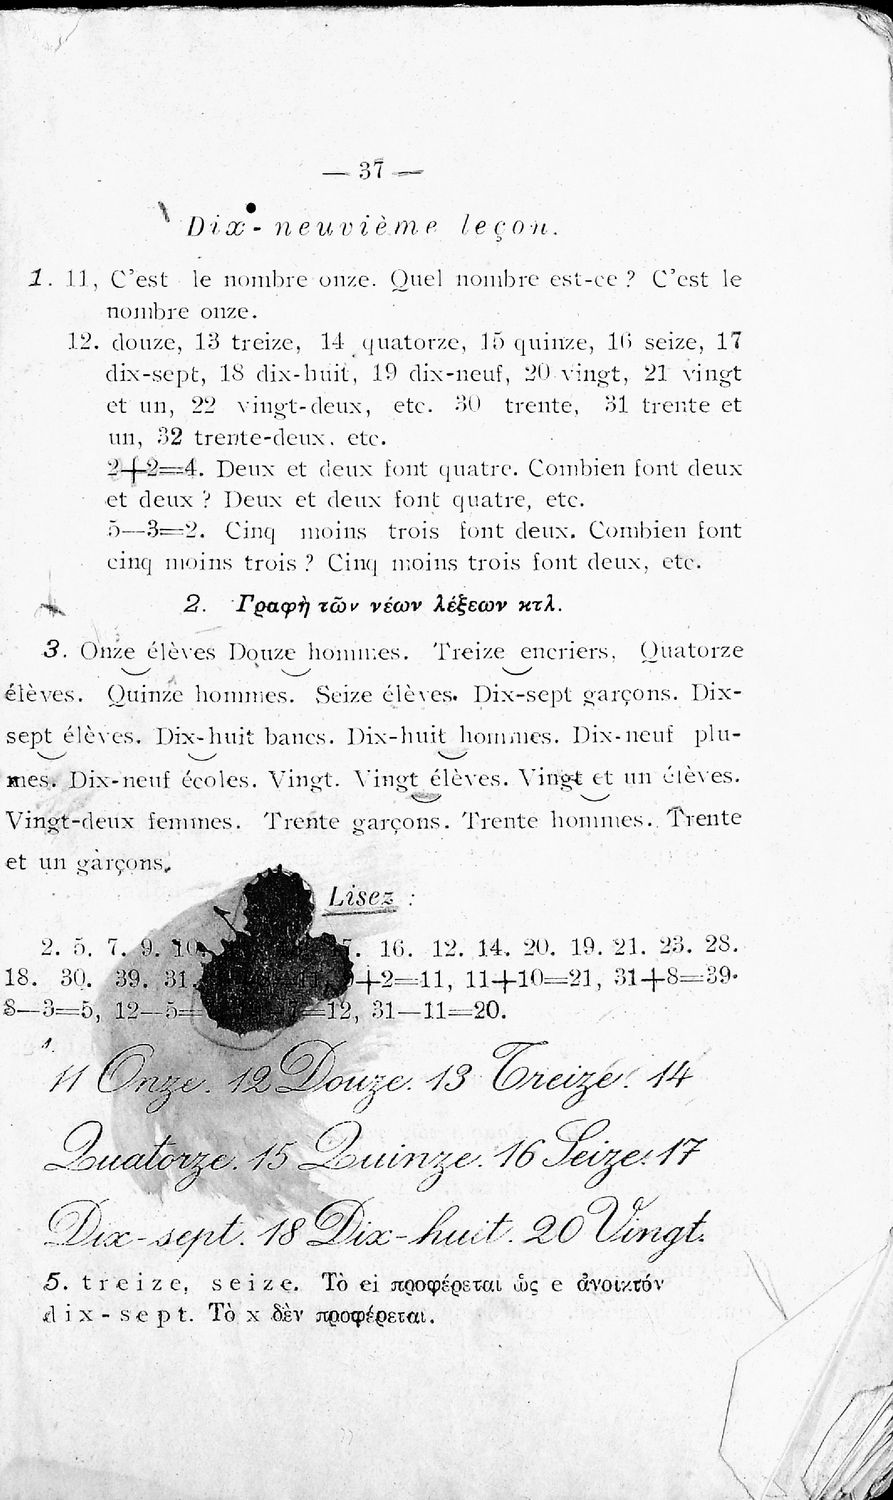 — 37 —
Dix-neuvième leçon.
1. 11, C’est le nombre onze. Quel nombre est-ce ? C’est le
nombre onze.
12. douze, 13 treize, 14 quatorze, 15 quinze, 16 seize, 17
dix-sept, 18 dix-huit, 19 dix-neuf, 20 vingt, 21 vingt
et un, 22 vingt-deux, etc. 30 trente, 31 trente et
un, 32 trente-deux. etc.
2+2=4. Deux et deux font quatre. Combien font deux
et deux ? Deux et deux font quatre, etc.
5—3=2. Cinq moins trois font deux. Combien font
cinq moins trois ? Cinq moins trois font deux, etc.
2. Γραφὴ τῶν νέων λέξεων κτλ.
3. Onze élèves Douze hommes. Treize encriers. Quatorze
élèves. Quinze hommes. Seize élèves. Dix-sept garçons. Dix-
sept élèves. Dix-huit bancs. Dix-huit hommes. Dix-neuf plu-
mes. Dix-neuf écoles. Vingt. Vingt élèves. Vingt et un élèves.
Vingt-deux femmes. Trente garçons. Trente hommes. Trente
et un garçons.
Lisez :
2. 5. 7. 9. 10. 16. 12. 14. 20. 19. 21. 23. 28.
18. 30. 39. 31. +2=11, 11+10=21, 31+8=39.
8—3=5, 12—5= =12, 31—11=20.
11 Onze. 12 Douze. 13 Treize. 14
Quatorze. 15 Quinze. 16 Seize. 17
Dix-sept. 18 Dix-huit. 20 Vingt.
5. treize, seize. Τὸ ei προφέρεται ὡς e ἀνοικτόν
dix-sept. Τὸ x δὲν προφέρεται.